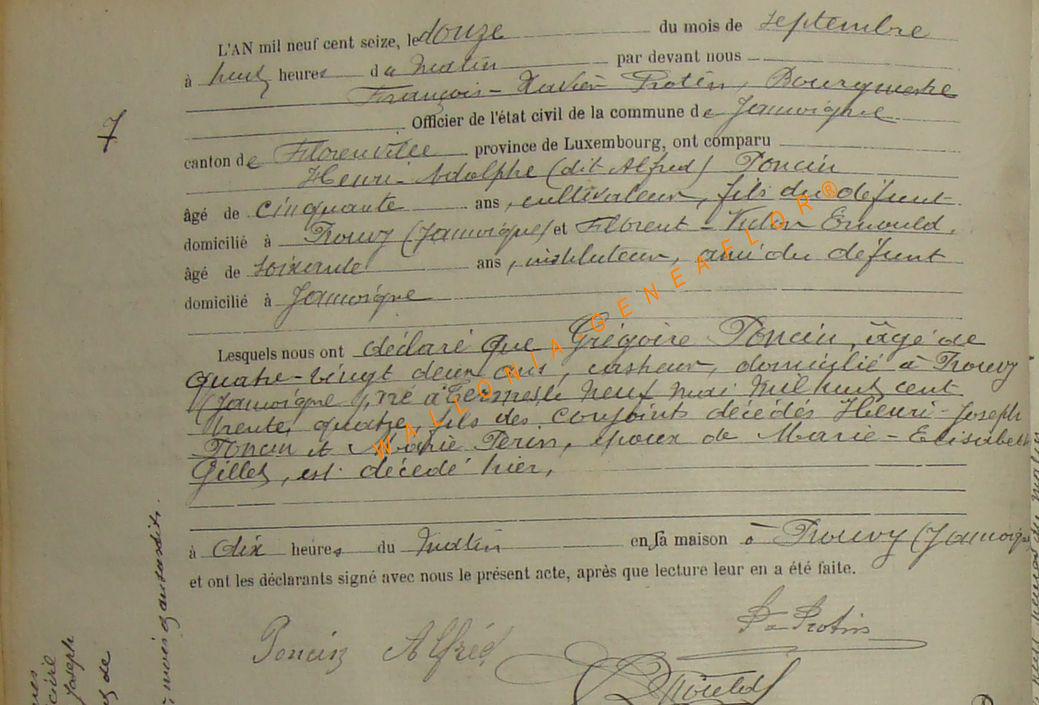 L'AN mil neuf cent seize, le douze du mois de septembre
à huit heures du matin par devant nous
François-Xavier Protin, Bourgmestre
7
Officier de l'état civil de la commune de Jamoigne
canton de Florenville province de Luxembourg, ont comparu
Henri-Adolphe (dit Alfred) Poncin
âgé de cinquante ans, cultivateur, fils du défunt
domicilié à Prouvy (Jamoigne) et Florent-Victor Ernould,
âgé de soixante ans, instituteur, ami du défunt
domicilié à Jamoigne
Lesquels nous ont déclaré que Grégoire Poncin, âgé de
quatre-vingt deux ans, , domicilié à Prouvy
(Jamoigne), né à Termes le neuf mai mil huit cent
trente quatre, fils des conjoints décédés Henri-Joseph
Poncin et Marie Perin, époux de Marie-Elisabeth
Gillet, est décédé hier,
à dix heures du matin en sa maison à Prouvy (Jamoigne
et ont les déclarants signé avec nous le présent acte, après que lecture leur en a été faite.
Poncin Alfred
Protin
WALLONIA-GENEAFLOR®
mois et an susdits.
Joseph
de